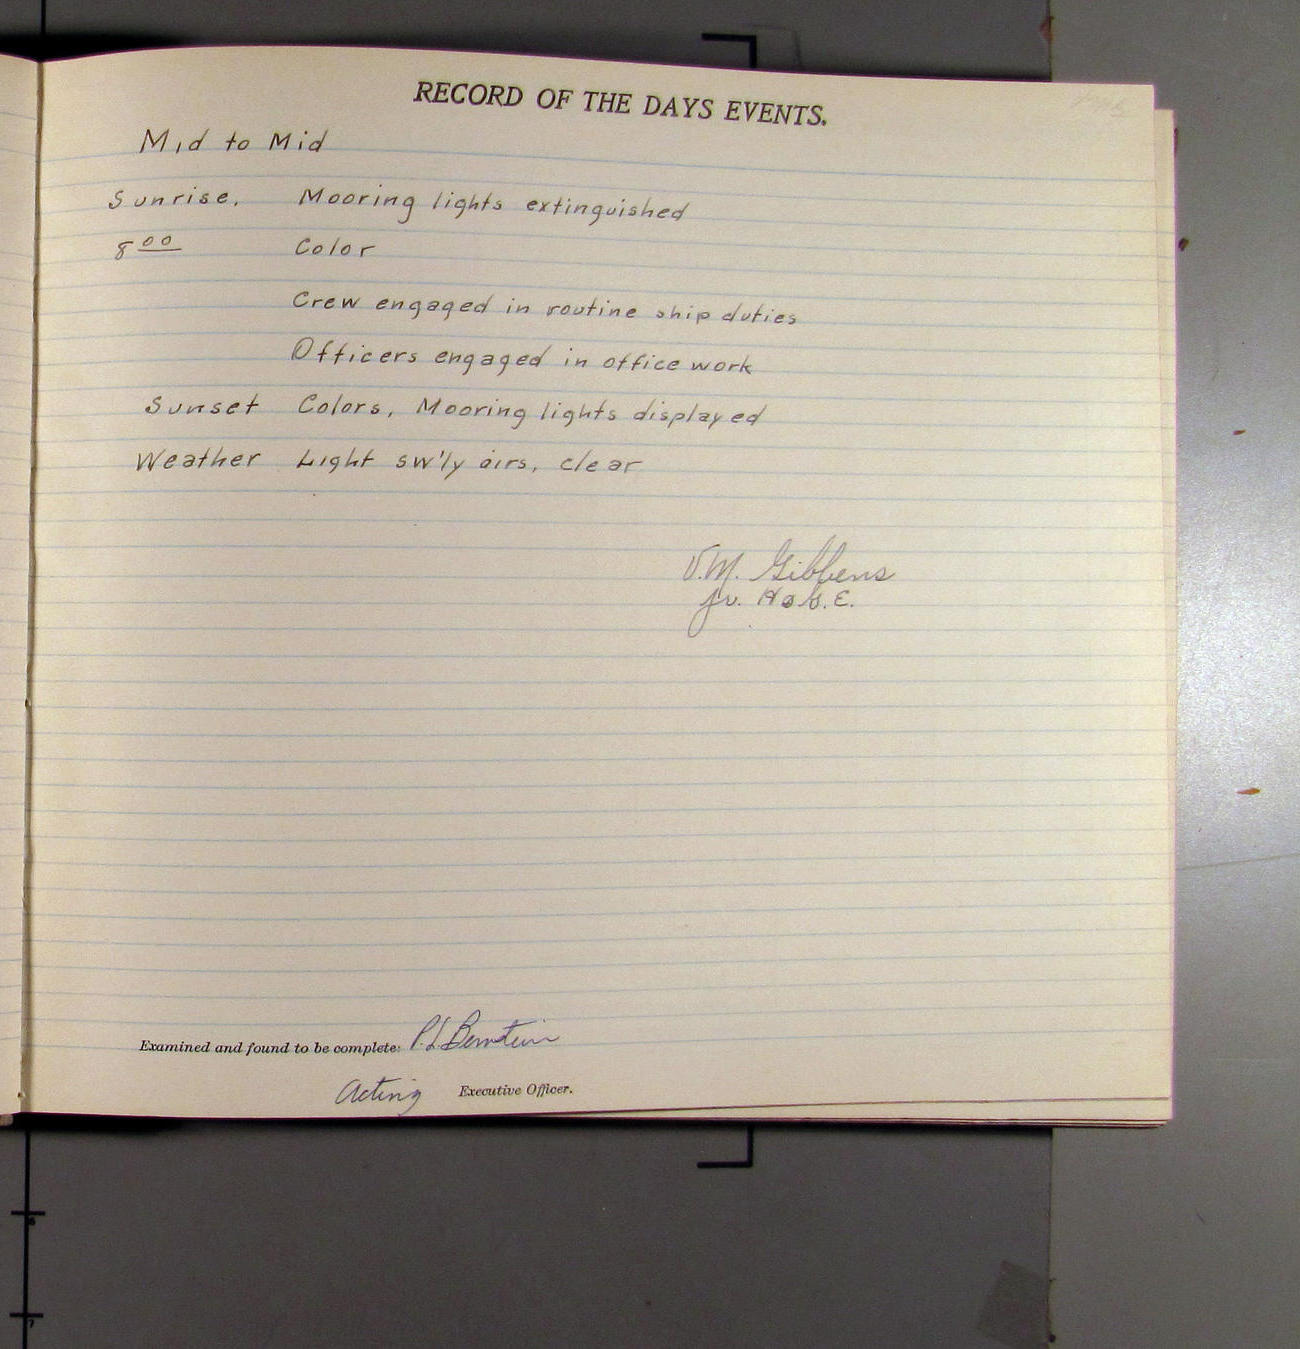 RECORD OF THE DAYS EVENTS.
Mid to Mid
Sunrise. Mooring lights extinguished
8 00 Color
Crew engaged in routine ship duties
Officers engaged in office work
Sunset Colors, Mooring lights displayed
Weather Light sw'ly airs, clear
V.M. Gibbens
jr. H & G. E.
Examined and found to be complete: P.L. Bernstein
Acting Executive Officer.